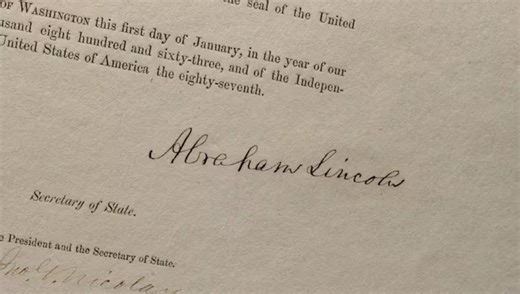 the seal of the United
OF WASHINGTON this first day of January, in the year of our
usand eight hundred and sixty-three, and of the Indepen-
United States of America the eighty-seventh.
Abraham Lincoln
Secretary of State.
e President and the Secretary of State.
Jno. G. Nicolay